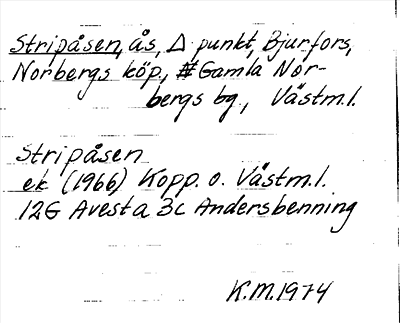 Stripåsen, ås, Δ punkt, Bjurfors,
Norbergs köp., # Gamla Nor-
bergs bg., Västm.l.
Stripåsen
ek (1966) Kopp. o. Västm.l.
12G Avesta 3c Andersbenning
K.M.1974